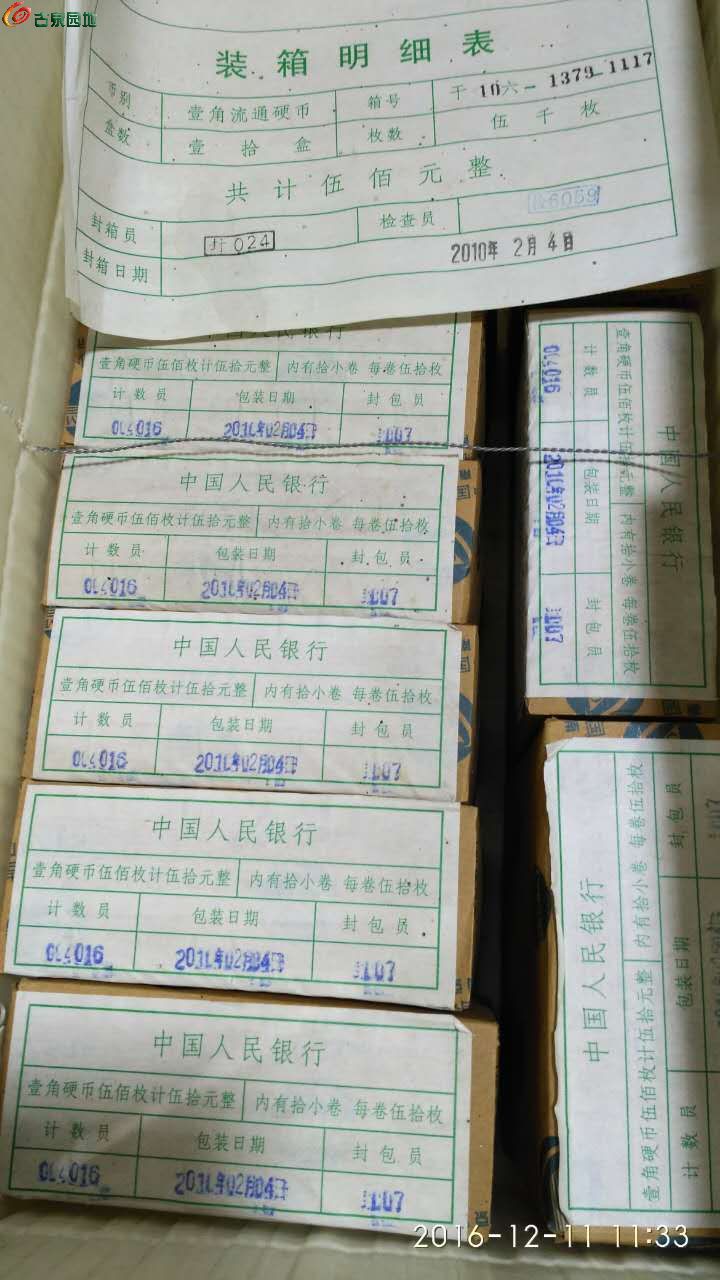 古泉园地
装箱明细表
币别 壹角流通硬币 箱号 干10六-1379-1117
盒数 壹拾盒 枚数 伍千枚
共计伍佰元整
封箱员 024 检查员 6059
封箱日期 2010年2月4日
中国人民银行
壹角硬币伍佰枚计伍拾元整 内有拾小卷 每卷伍拾枚
计数员 包装日期 封包员
016 2010年02月04日 007
中国人民银行
壹角硬币伍佰枚计伍拾元整 内有拾小卷 每卷伍拾枚
计数员 包装日期 封包员
016 2010年02月04日 007
中国人民银行
壹角硬币伍佰枚计伍拾元整 内有拾小卷 每卷伍拾枚
计数员 包装日期 封包员
016 2010年02月04日 007
中国人民银行
壹角硬币伍佰枚计伍拾元整 内有拾小卷 每卷伍拾枚
计数员 包装日期 封包员
016 2010年02月04日 007
中国人民银行
壹角硬币伍佰枚计伍拾元整 内有拾小卷 每卷伍拾枚
计数员 包装日期 封包员
016 2010年02月04日 007
中国人民银行
壹角硬币伍佰枚计伍拾元整 内有拾小卷 每卷伍拾枚
计数员 包装日期 封包员
016 2010年02月04日 007
中国人民银行
壹角硬币伍佰枚计伍拾元整 内有拾小卷 每卷伍拾枚
计数员 包装日期 封包员
2016-12-11 11:33